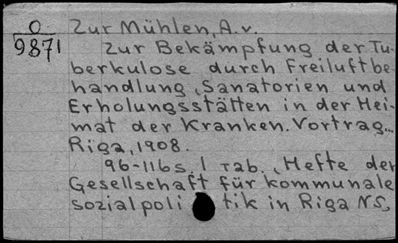 O
9871
Zur Mühlen, A. v.
Zur Bekämpfung der Tu-
berkulose durch Freiluftbe-
handlung, Sanatorien und
Erholungsstätten in der Hei-
mat der Kranken. Vortrag...
Riga, 1908.
96-116 s. 1 Tab., Hefte der
Gesellschaft für kommunale
sozialpolitik in Riga N5,